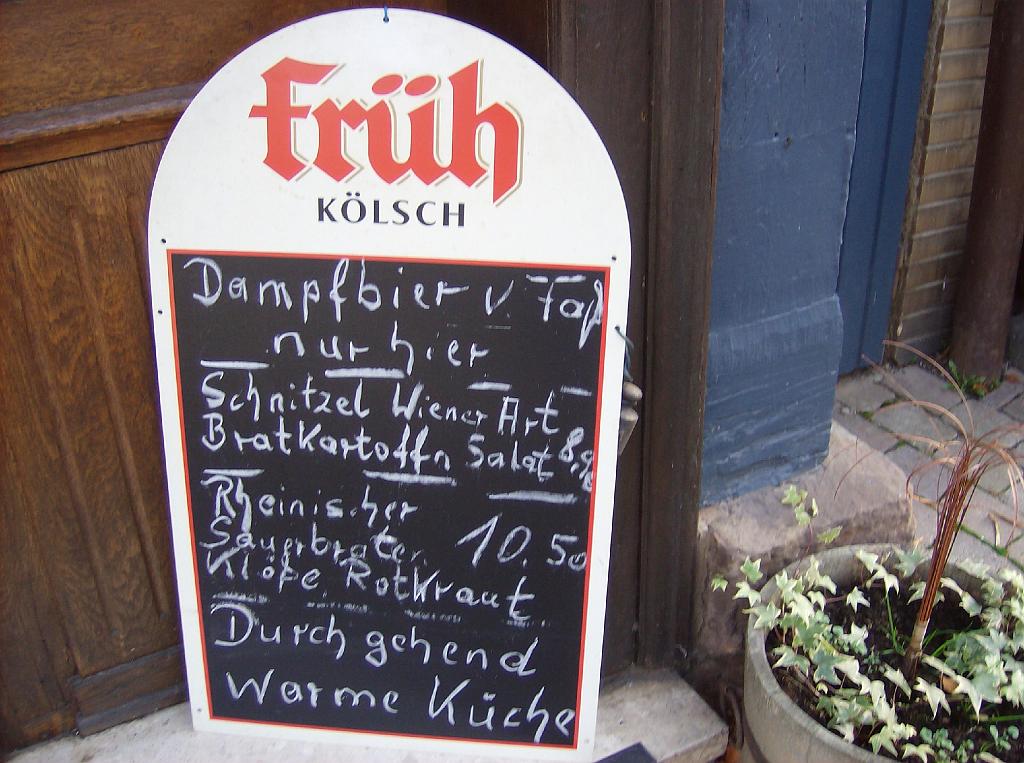 früh
KÖLSCH
Dampfbier v. Faß
nur hier
Schnitzel Wiener Art
Bratkartoffn Salat
Rheinischer
Sauerbraten 10.50
Klöße Rotkraut
Durch gehend
Warme Küche